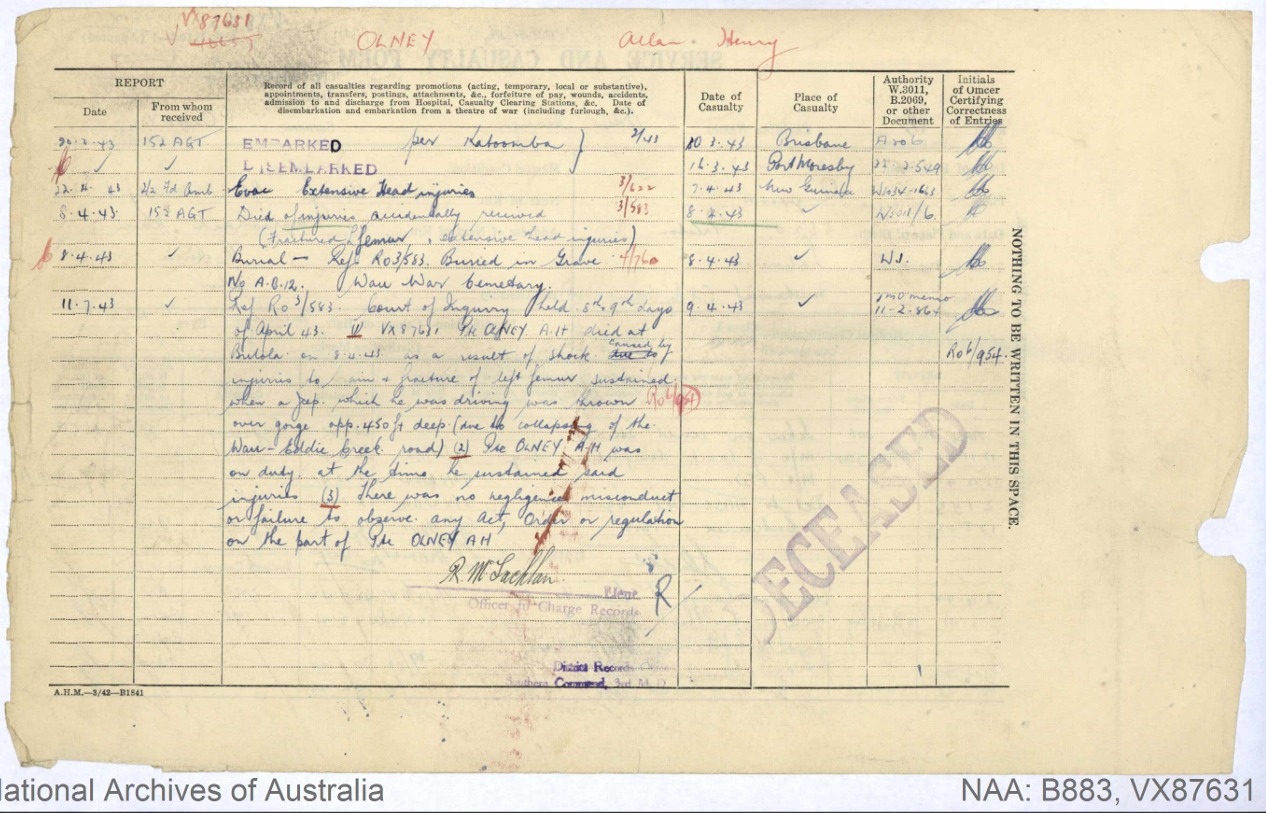 VX87631
OLNEY Allan Henry
REPORT
Date
From whom received
Record of all casualties regarding promotions (acting, temporary, local or substantive),
appointments, transfers, postings, attachments, &c., forfeiture of pay, wounds, accidents,
admission to and discharge from Hospital, Casualty Clearing Stations, &c. Date of
disembarkation and embarkation from a theatre of war (including furlough, &c.).
Date of Casualty
Place of Casualty
Authority W.3011, B.2069, or other Document
Initials of Officer Certifying Correctness of Entries
EMBARKED per Katoomba } 2/43 10.3.43 Brisbane
DISEMBARKED 16.3.43 Port Moresby
Evac Extensive Head injuries 3/622 7.4.43 New Guinea
8.4.43 AGT Died of injuries accidentally received 3/583 8.4.43 ✓
(Fractured L femur, extensive head injuries)
8.4.43 ✓ Burial — Ref RO3/583. Buried in Grave 4/760 8.4.43 ✓
No A.B.12. Wau War Cemetery.
11.7.43 ✓ Ref RO 3/583. Court of Inquiry held 8th, 9th days 9.4.43 ✓
of April 43. (1) VX87631 Pte OLNEY A.H died at 11-2-864
on 8.4.43 as a result of shock caused by due to RO6/954.
injuries to + fracture of left femur sustained
when a jeep which he was driving was thrown RO6/954
over gorge app. 450 ft deep (due to collapsing of the
Wau - Eddie Creek road) (2) Pte OLNEY A.H was
on duty at the time he sustained said
injuries (3) There was no negligence misconduct
or failure to observe any Act, Order or regulation
on the part of Pte OLNEY AH
R. McLachlan.
Lieut
Officer i/c Charge Records
DECEASED
District Records Office
Southern Command, 3rd M.D.
NOTHING TO BE WRITTEN IN THIS SPACE.
A.H.M.—3/42—B1841
National Archives of Australia
NAA: B883, VX87631